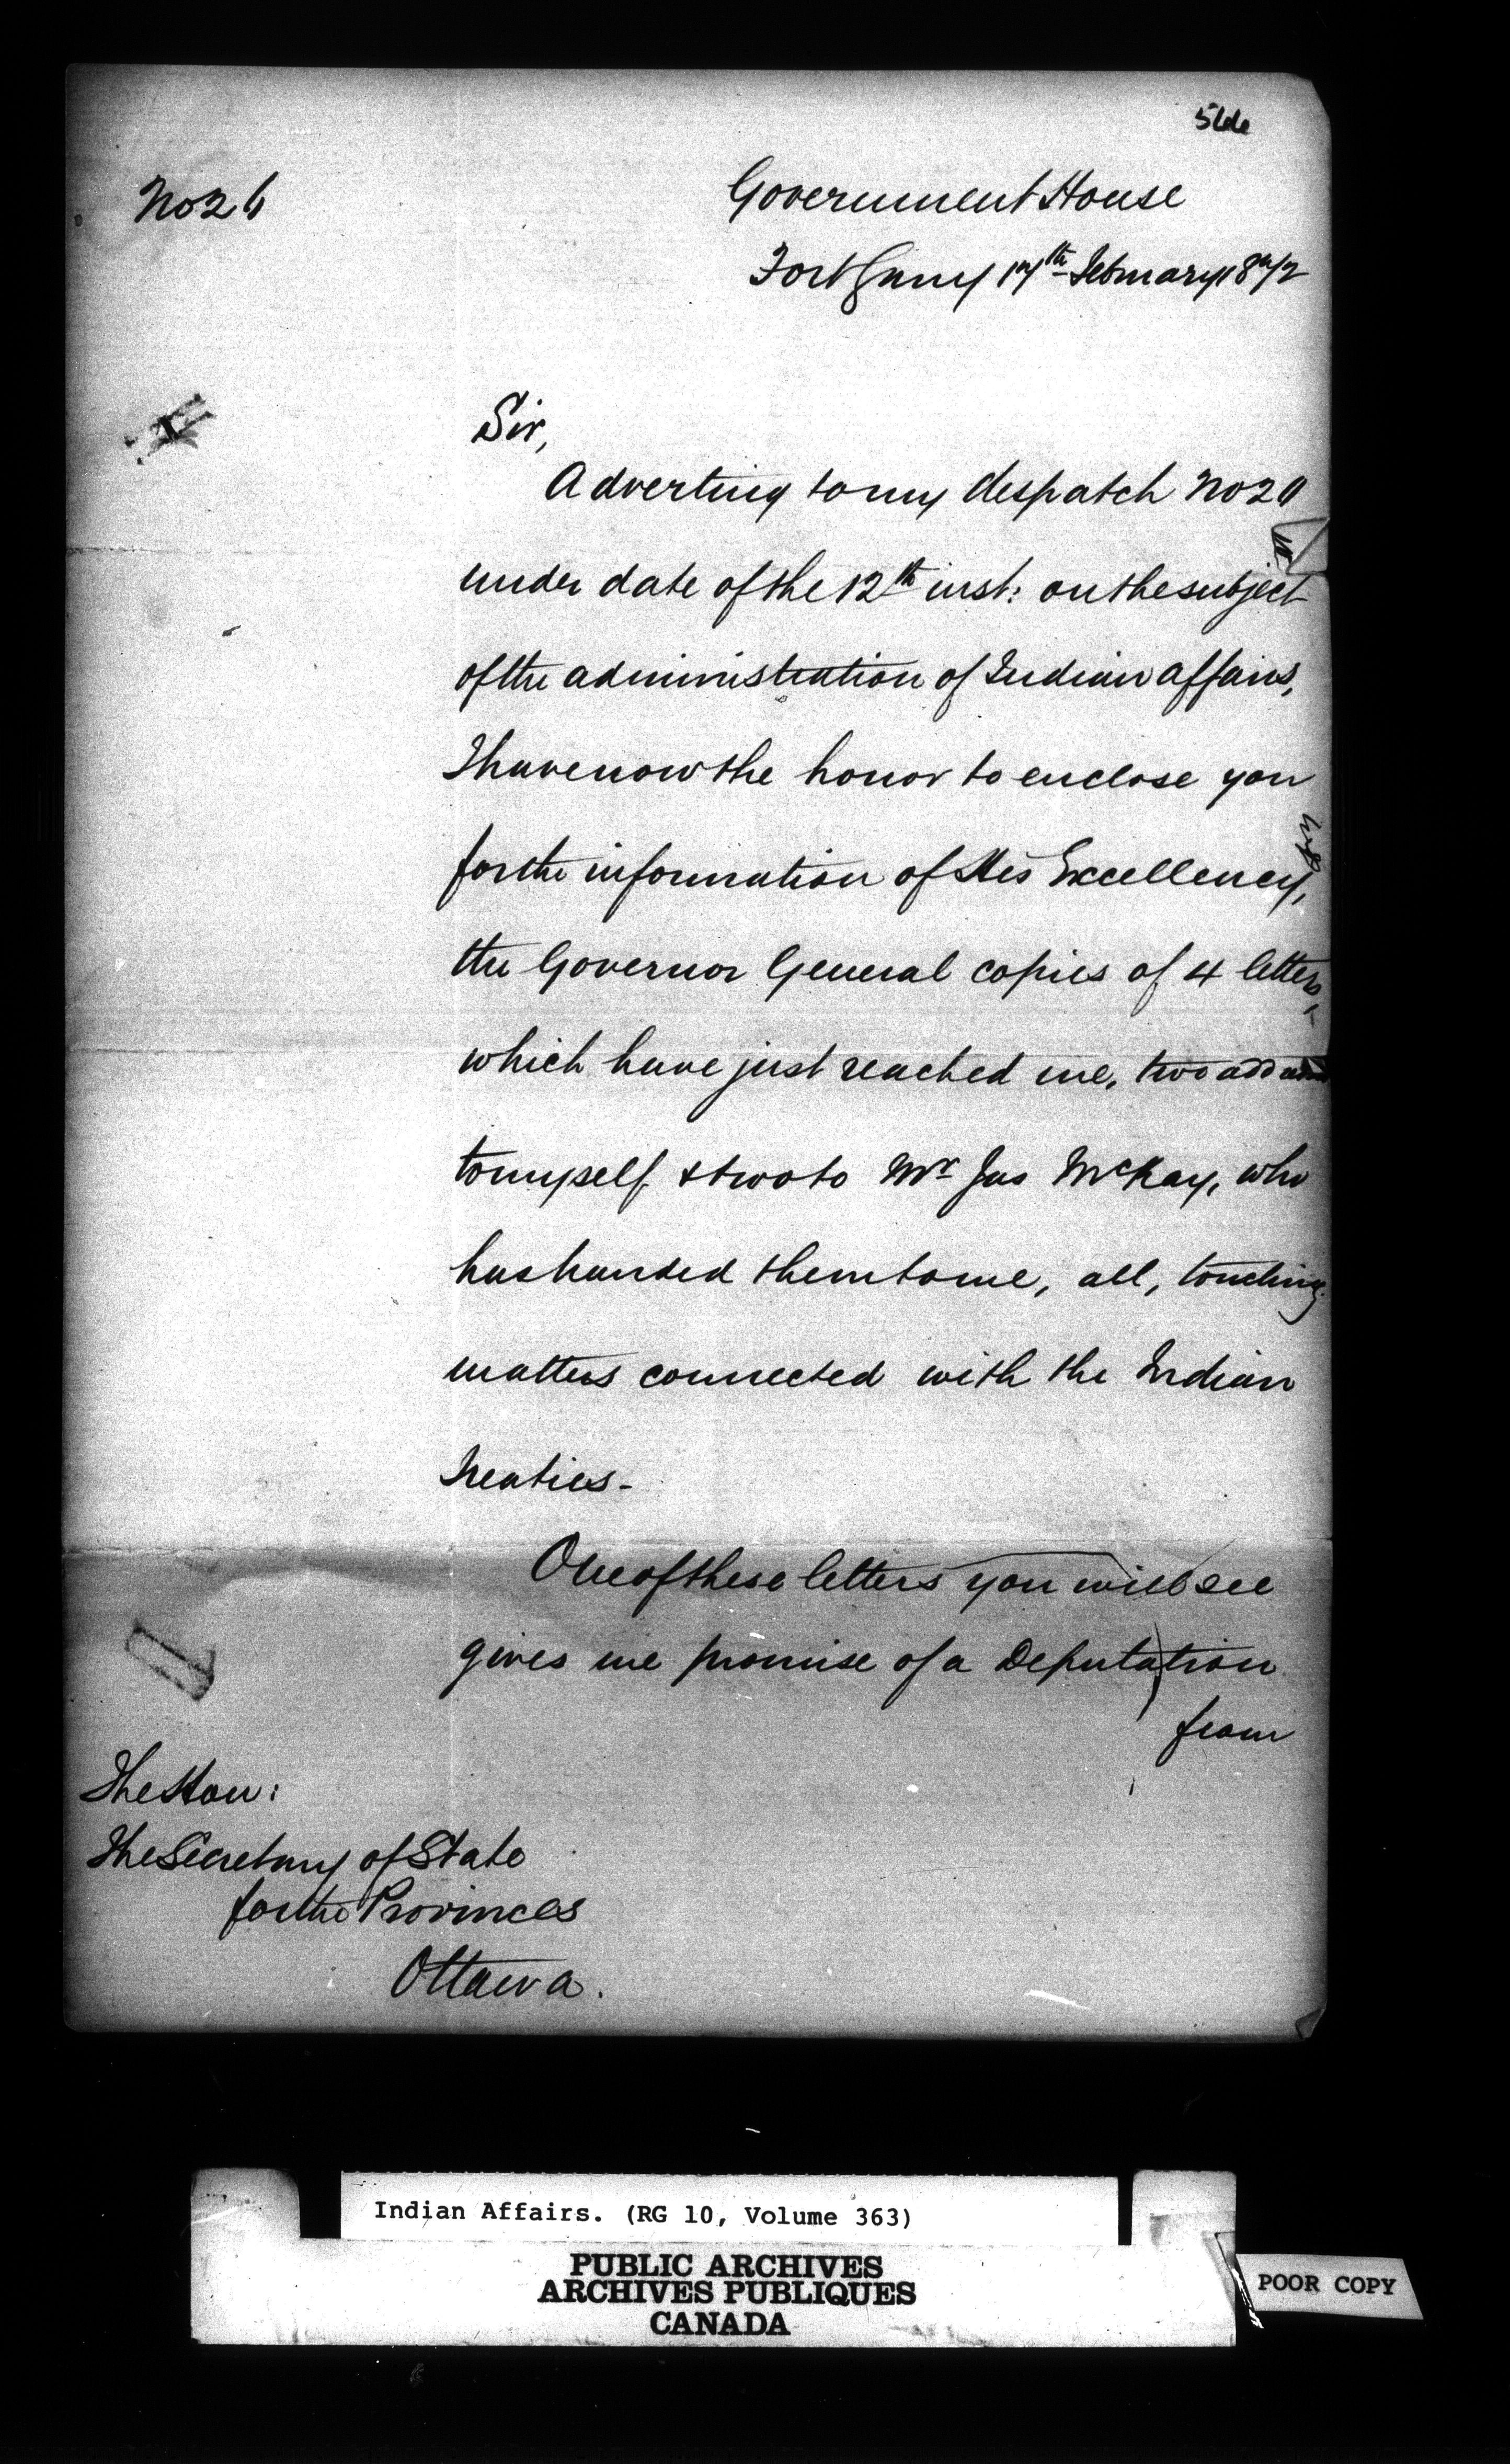 No 26
Government House
Fort Garry 17th February 1872
Sir,
Adverting to my despatch No 20
under date of the 12th inst: on the subject
of the administration of Indian affairs,
I have now the honor to enclose you
for the information of His Excellency,
the Governor General copies of 4 letters,
which have just reached me, two
to myself & two to Mr Jas McKay, who
has handed them to me, all, touching
matters connected with the Indian
Treaties-
One of these letters you will see
gives me promise of a Deputation
from
The Hon:
The Secretary of State
for the Provinces
Ottawa.
Indian Affairs. (RG 10, Volume 363)
PUBLIC ARCHIVES
ARCHIVES PUBLIQUES
CANADA
POOR COPY